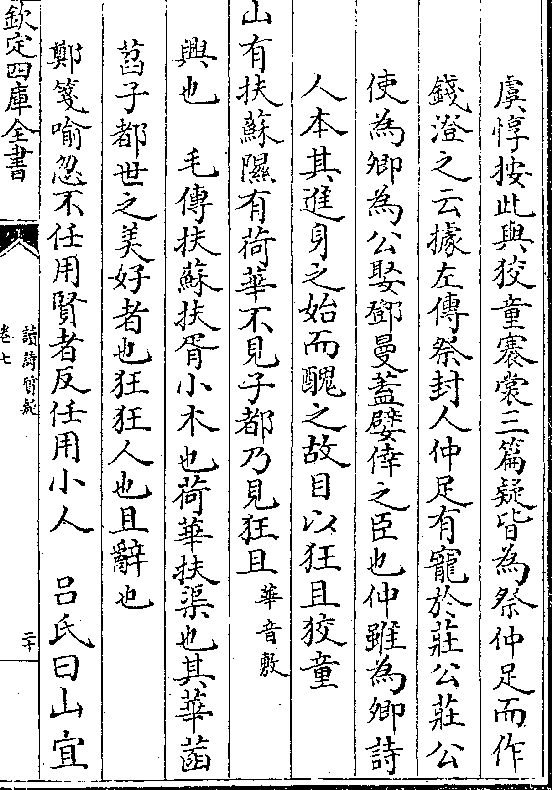 虞惇按此與狡童褰裳三篇疑皆為祭仲足而作
錢澄之云據左傳祭封人仲足有寵於莊公莊公
使為卿為公娶鄧曼蓋嬖倖之臣也仲雖為卿詩
人本其進身之始而醜之故目以狂且狡童
山有扶蘇隰有荷華不見子都乃見狂且華音敷
興也　毛傳扶蘇扶胥小木也荷華扶渠也其華菡
萏子都世之美好者也狂狂人也且辭也
鄭箋喻忽不任用賢者反任用小人　呂氏曰山宜
欽定四庫全書
讀詩質疑
卷七
二十